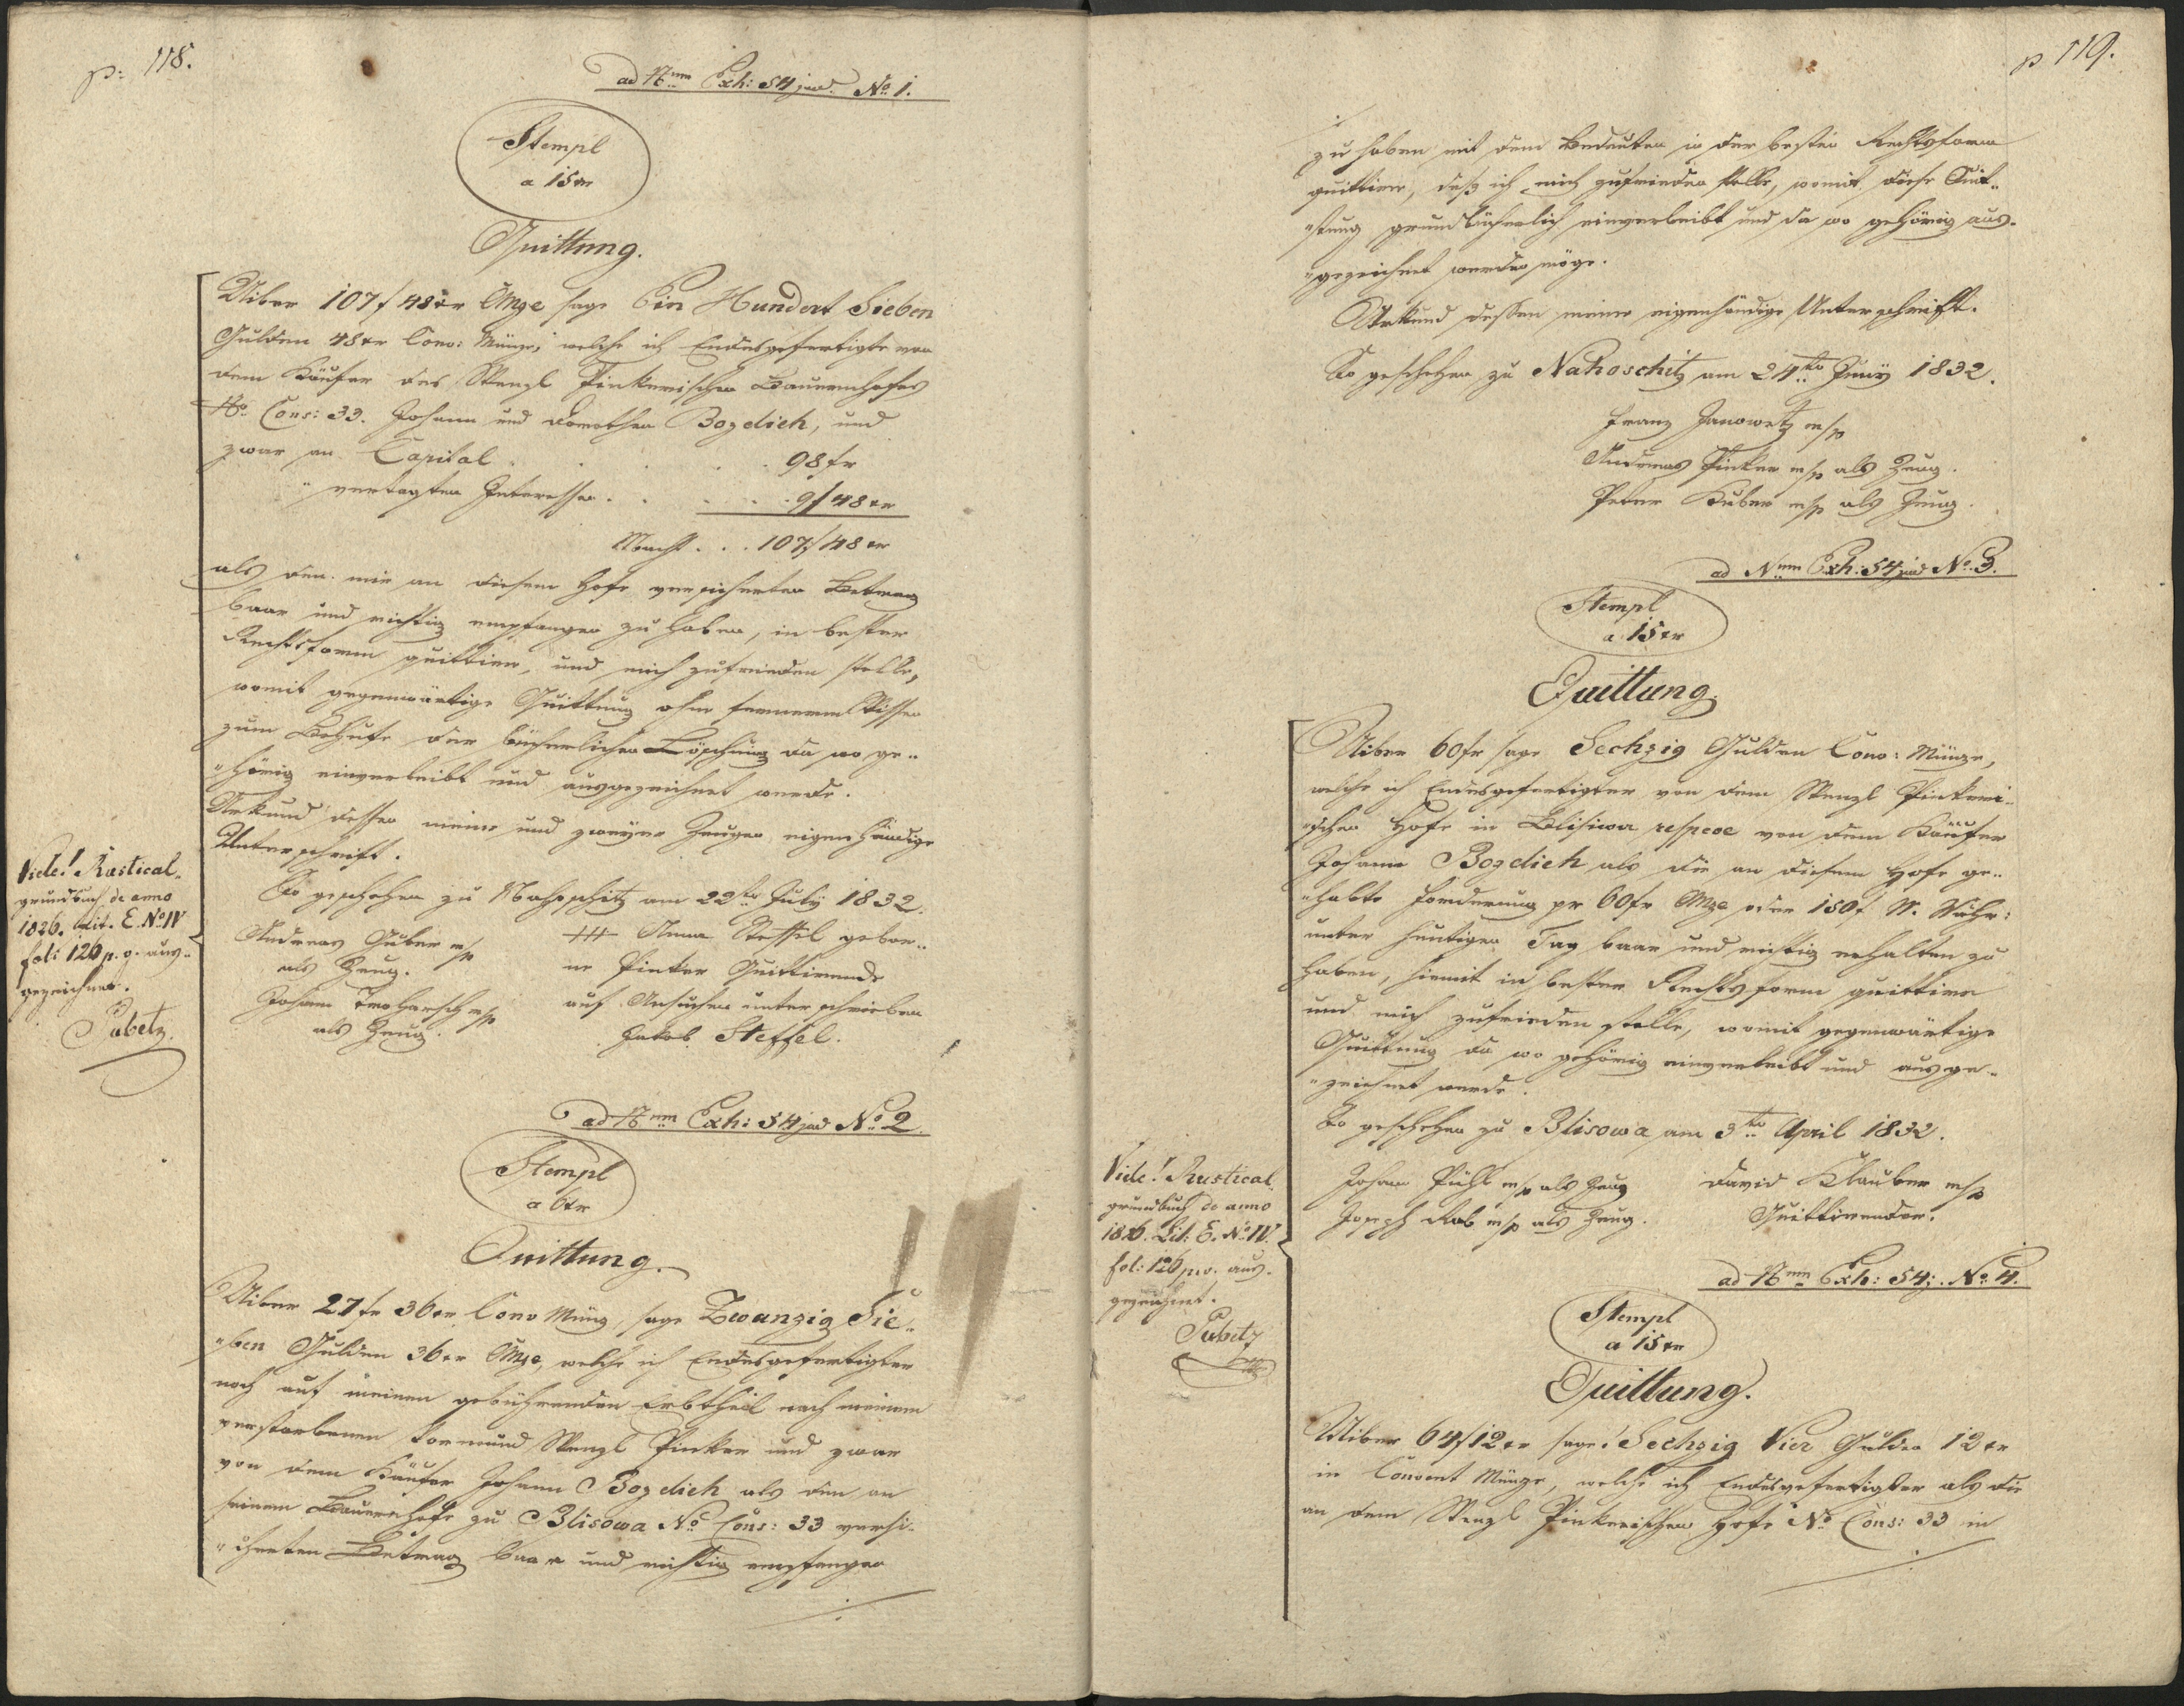 p: 118.
ad Nrum Exh: 54 jud. No 1.
Stempl
a 15 xr
Quittung.
Uiber 107 f 48 xr CMze sage Ein Hundert Sieben
Gulden 48 xr Conv: Münze, welche ich Endesgefertigte von
dem Käufer des Wenzl Pinkerischen Bauernhofes
No Cons: 33. Johann und Dorothea Bozdieh, und
zwar an Capital . . . . 98 fr
" vertagten Interessen . . . . 9 f 48 xr
Macht . . . 107 f 48 xr
als den mir an diesem Hofe versicherten Betrag
baar und richtig empfangen zu haben, in bester
Rechtsform quittire, und mich zufrieden stelle,
womit gegenwärtige Quittung ohne ferneren Wissen
zum Behufe der bücherlichen Löschung da wo ge„
„hörig einverleibt und ausgezeichnet werde.
Urkund dessen meine und zweyer Zeugen eigenhändige
Unterschrift.
So geschehen zu Nahoschitz am 22ten July 1832.
Andreas Huber m/p
als Zeug.
Johann m/p
als Zeug.
+++ Anna Steffel gebor„
ne Pinker Quittirende
auf Ansuchen unterschrieben
Jakob Steffel.
Vide! Rustical„
grundbuch de anno
1826. Lit. E. No IV
fol: 126 p. v. aus„
gezeichnet.
Pabetz
ad Nrum Exh: 54 jud No 2.
Stempl
a 6 xr
Quittung.
Uiber 27 fr 36 xr Conv Münz, sage Zwanzig Sie„
„ben Gulden 36 xr CMze, welche ich Endesgefertigter
noch auf meinen gebührenden Erbtheil nach meinem
verstorbenen Vormund Wenzl Pinker und zwar
von dem Käufer Johann Bozdieh als den an
seinem Bauernhofe zu Blisowa No Cons: 33 versi„
„cherten Betrag baar und richtig empfangen
p 119.
zu haben mit dem Bedeuten in der besten Rechtsform
quittire, daß ich mich zufrieden stelle, womit diese Quit„
„tung grundbücherlich einverleibt und da wo gehörig aus„
„gezeichnet werden möge.
Urkund dessen meine eigenhändige Unterschrift.
So geschehen zu Nahoschitz am 24ten Juny 1832.
Franz Janowetz m/p
Andreas Pinker m/p als Zeug.
Peter Huber m/p als Zeug.
ad Nrum Exh: 54 jud No 3.
Stempl
a 15 xr
Quittung.
Uiber 60 fr sage Sechzig Gulden Conv: Münze,
welche ich Endesgefertigter von dem Wenzl Pinkeri„
„schen Hofe in Blisiwa respcve von dem Käufer
Johann Bozdieh als die an diesem Hofe ge„
„habte Forderung pr 60 fr CMze oder 150 f W. Währ:
unter heutigen Tag baar und richtig erhalten zu
haben, hiemit in bester Rechtsform quittire
und mich zufrieden stelle, womit gegenwärtige
Quittung da wo gehörig einverleibt und ausge„
„zeichnet werde.
So geschehen zu Blisowa am 3ten April 1832.
Johann Pühl m/p als Zeug
Joseph Rab m/p als Zeug.
David Klauber m/p
Quittirender.
Vide! Rustical„
grundbuch de anno
1826. Lit: E. No IV.
fol: 126 p. v. aus„
gezeichnet.
Pabetz
ad Nrum Exh: 54 j. No 4.
Stempl
a 15 xr
Quittung.
Uiber 64 f 12 xr sage! Sechzig Vier Gulden 12 xr
in Convent Münze, welche ich Endesgefertigter als die
an dem Wenzl Pinkerischen Hofe No Cons: 33 in